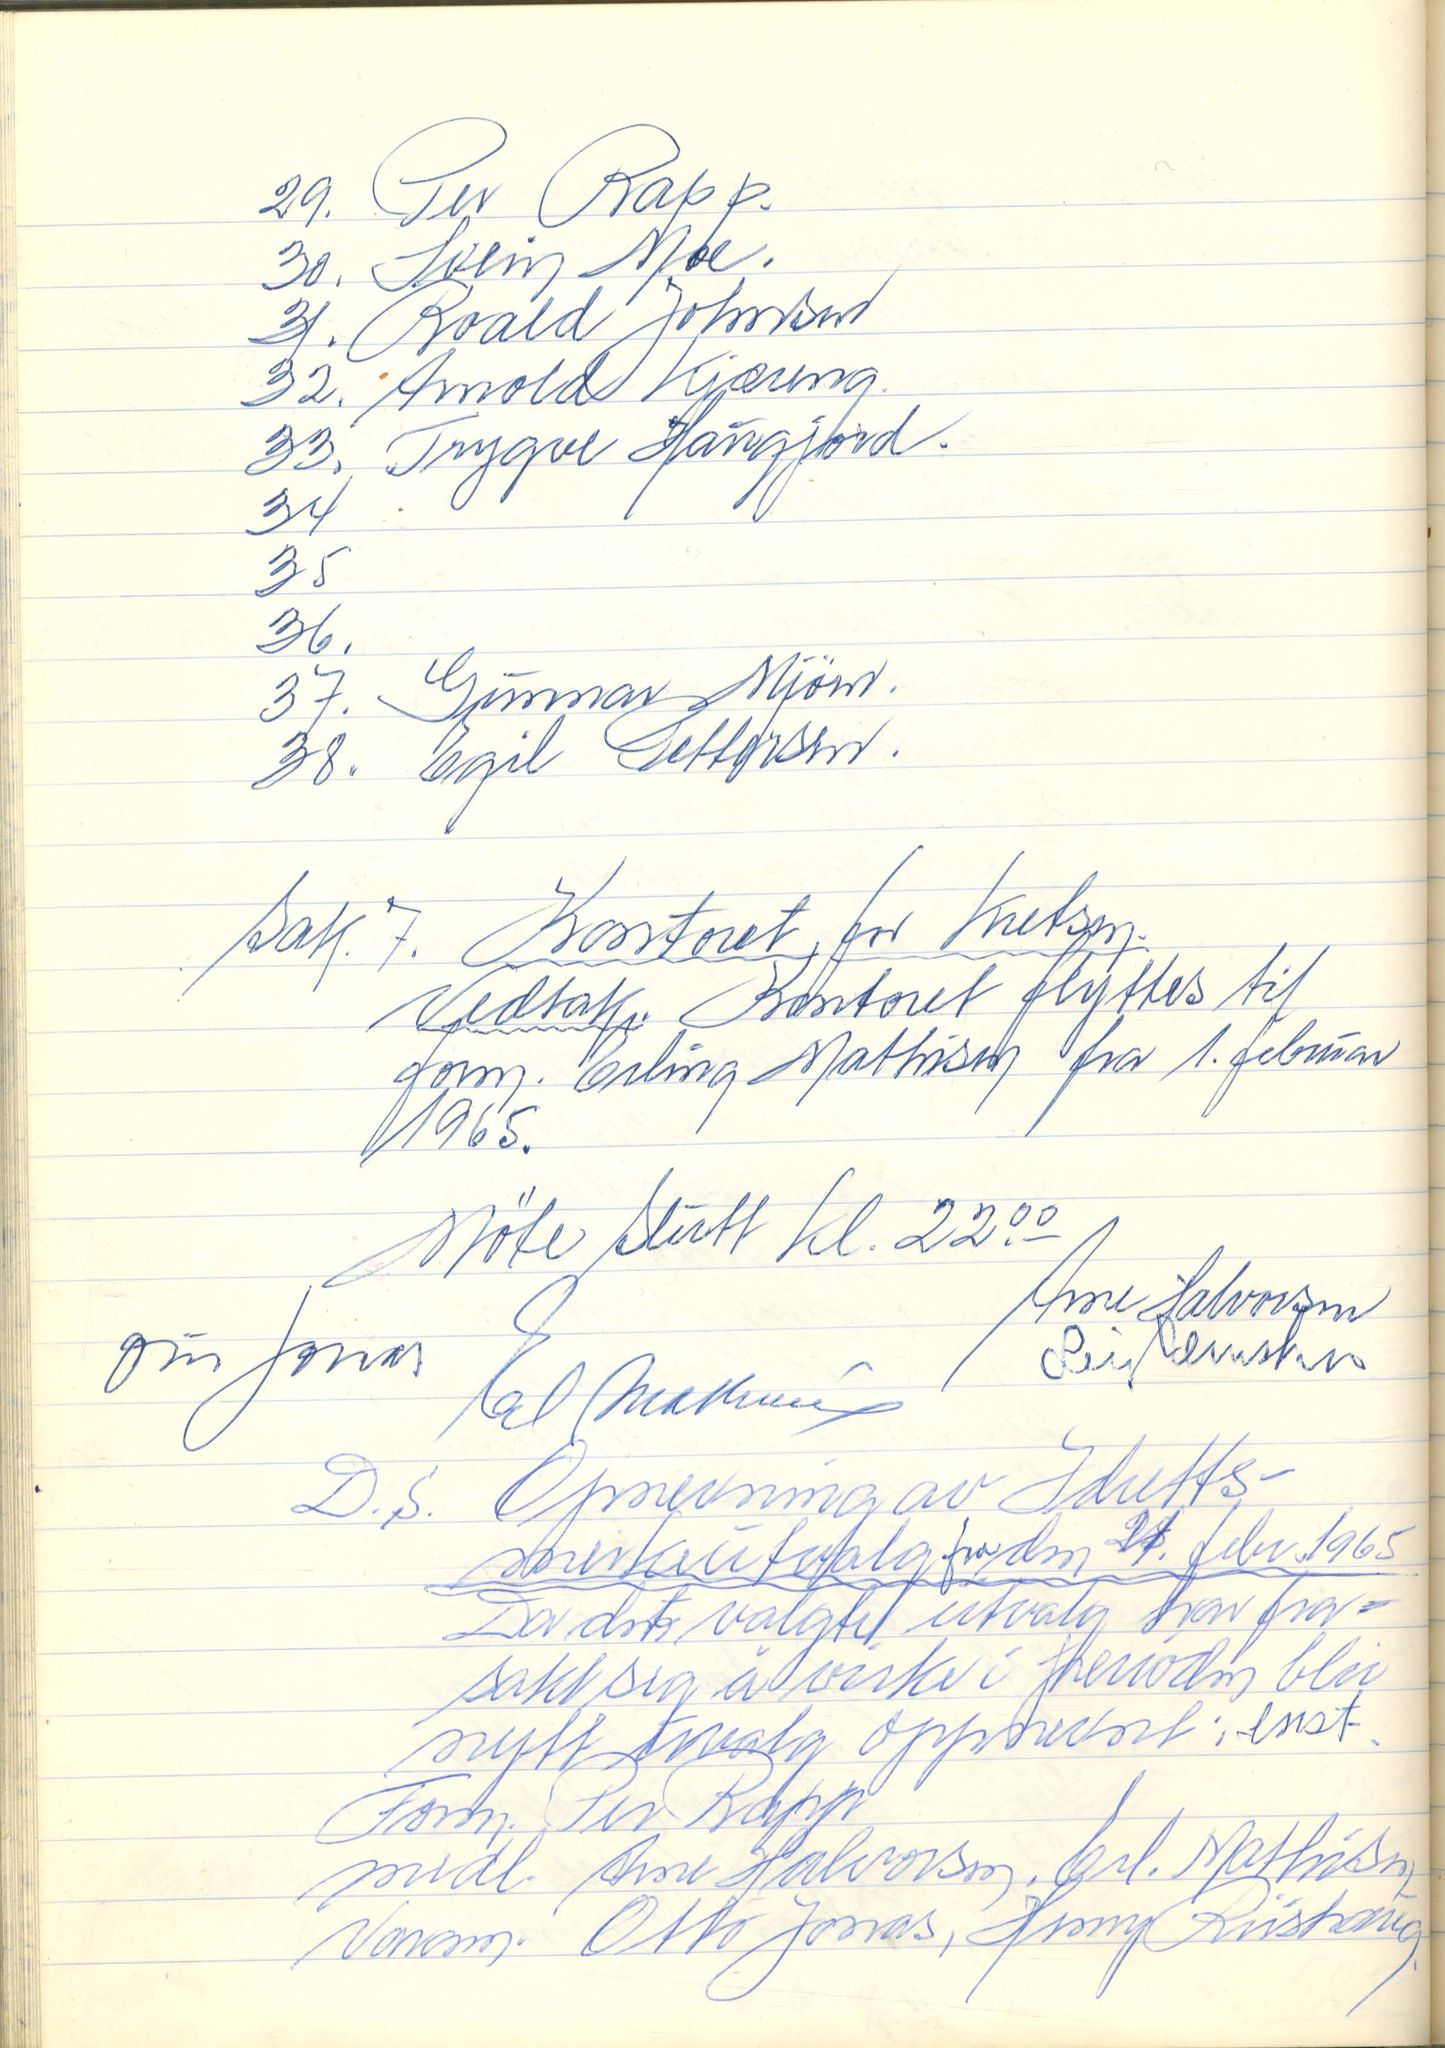 29. Per Rapp.
30. Svein Moe.
31. Roald Johnsen
32. Arnold Kjæreng.
33. Trygve Haugjord.
34
35
36.
37. Gunnar Mjöen.
38. Egil Pettersen.
Sak. 7. Kontoret for Kretsen.
Vedtak. Kontoret flyttes til
form. Erling Mathisen fra 1. februar
1965.
Möte slutt kl. 22.00
Arne Halvorsen
Jonas
D.S. Opnevning av Idretts-
merkeutvalg for den 21. febr. 1965
Da det valgte utvalg har fra=
sakt sig å virke i perioden blir
nytt utvalg oppnevnt: enst.
Form. Per Rapp
medl. Arne Halvorsen, Erl. Mathisen
Varam. Otto Jonas, Henry Riishaug.